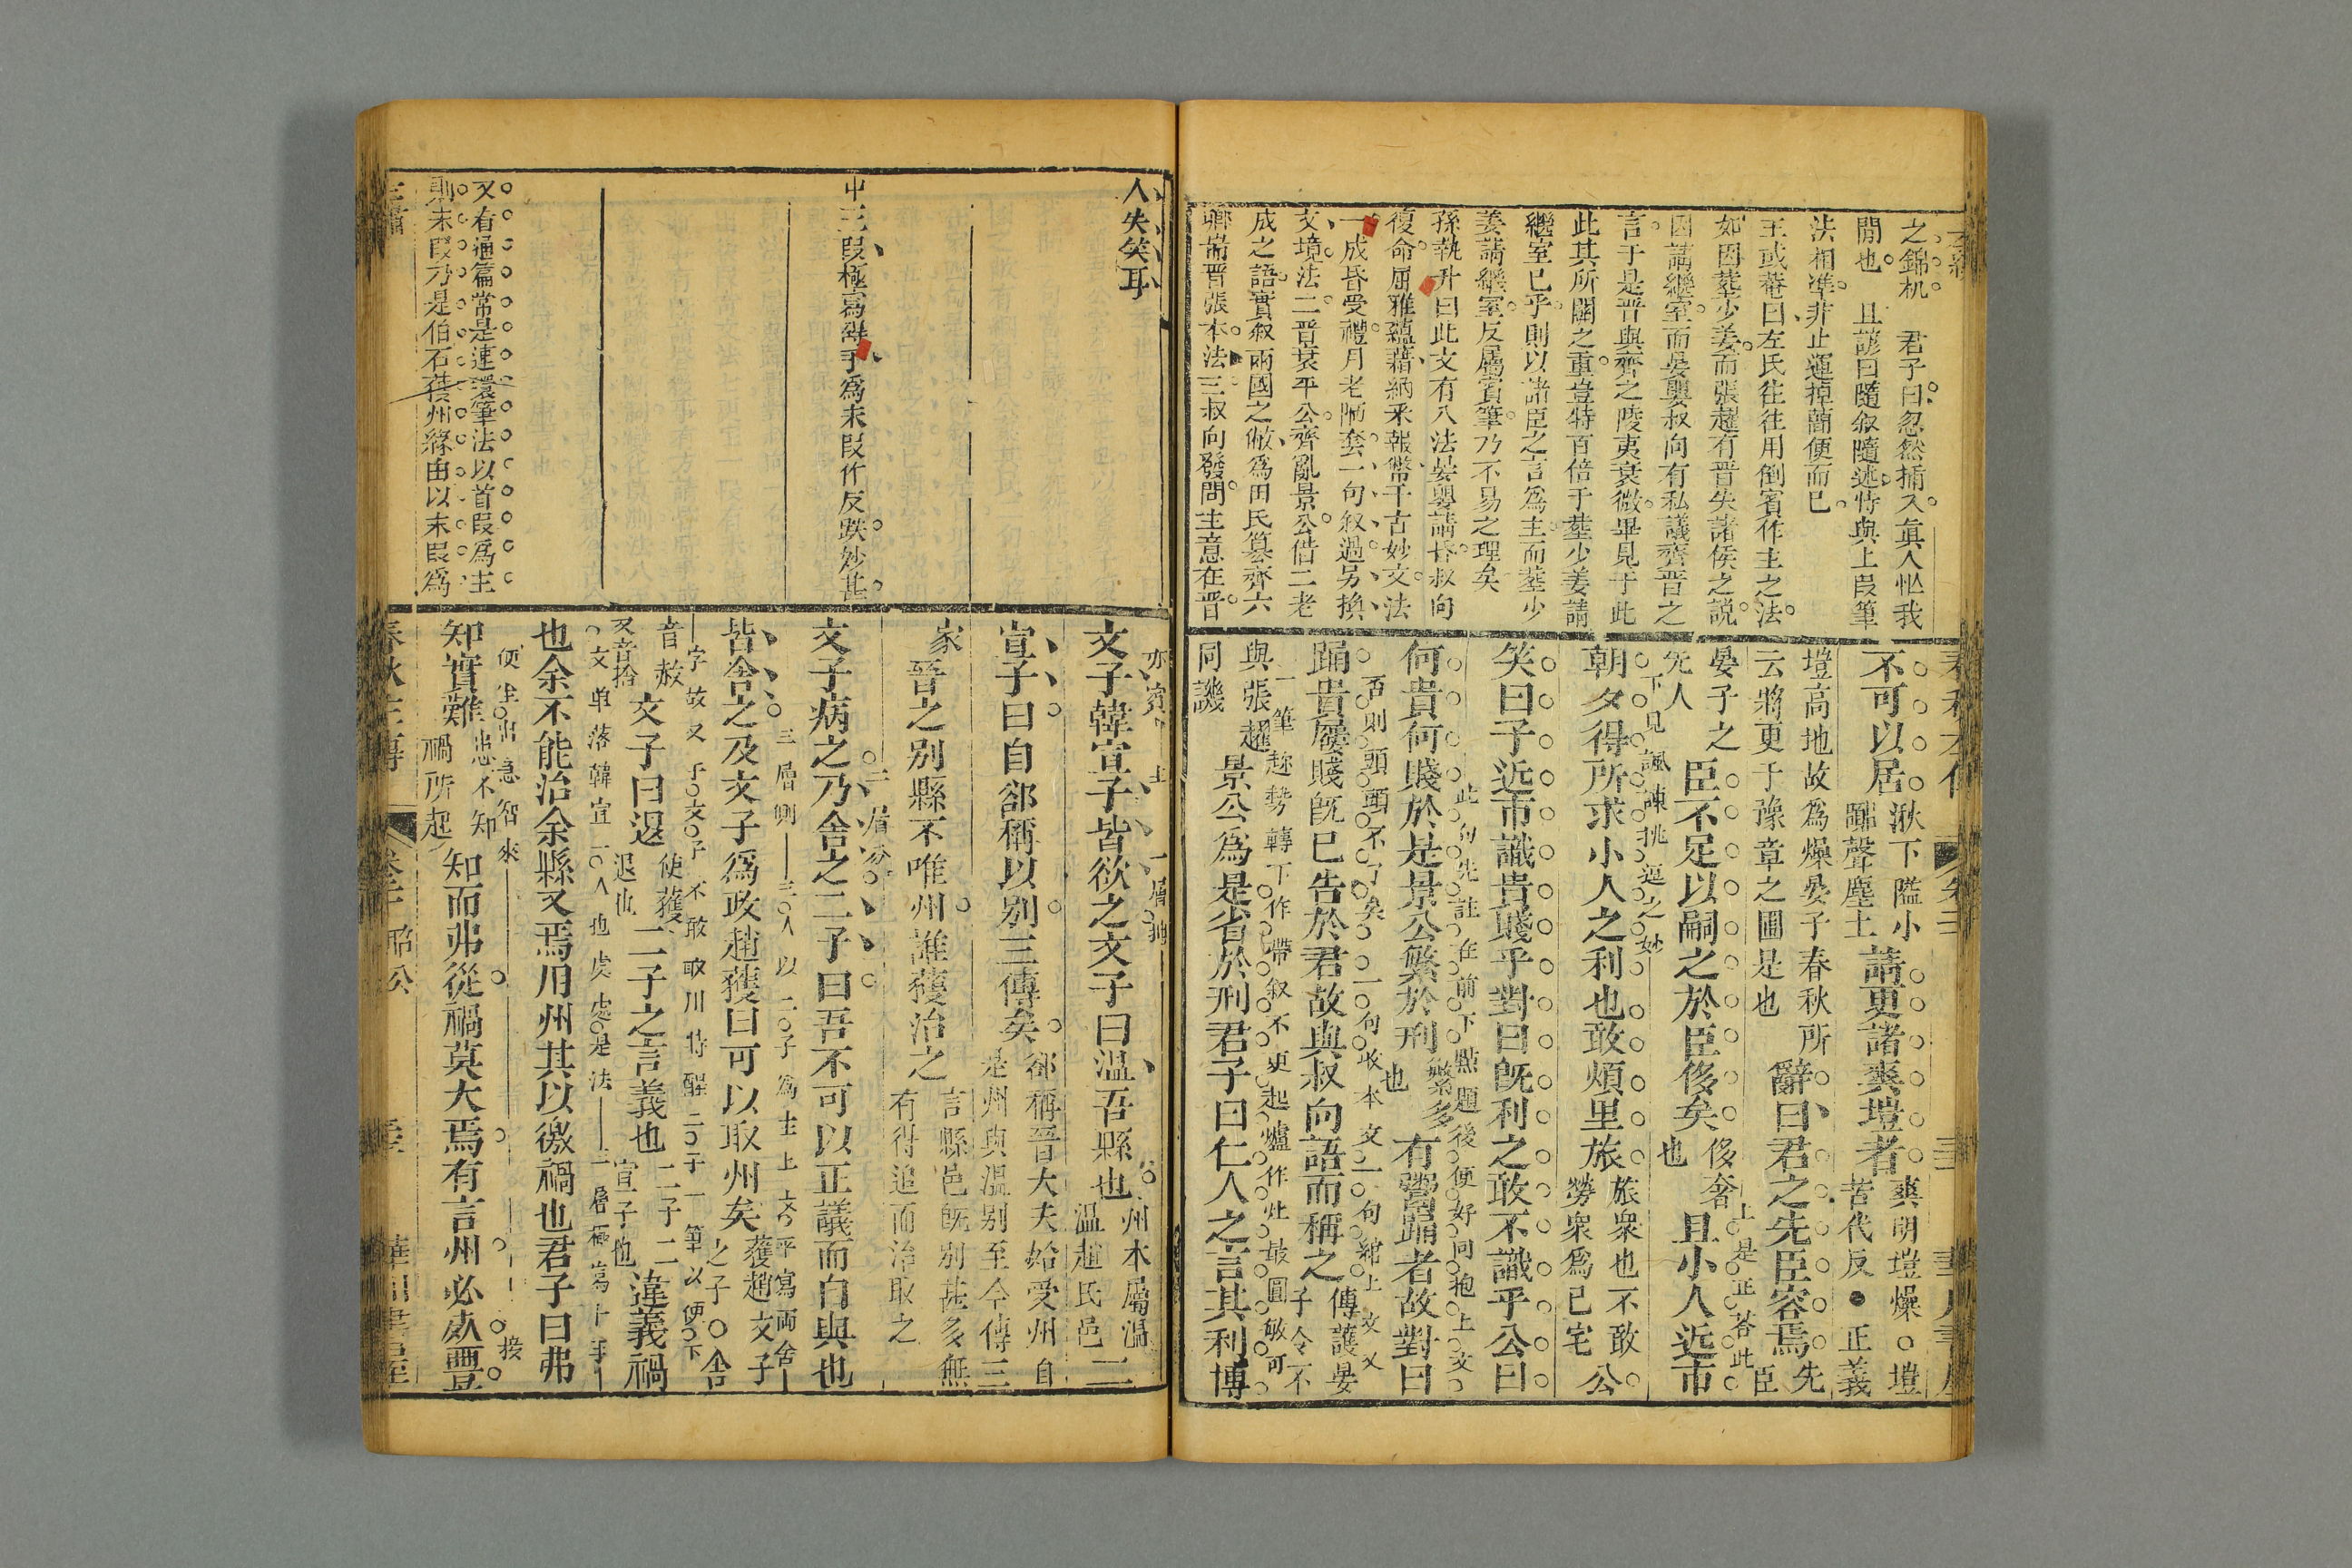 之錦机　君子曰忽然插入眞人怭我
閒也　且諺曰隨叙隨述恃與上段筆
法相準非止運掉蕳便而已
王或菴曰左氏往往用倒賓作主之法
如因葬少姜而張趯有晉失諸侯之說
因請繼室而晏嬰叔向有私議齊晉之
言于是晋與齊之陵夷衰微畢見于此
此其所關之重豈特百倍于葬少姜請
繼室已乎則以諸臣之言爲主而葬少
姜請繼室反屬賓筆乃不易之理矣
孫執升曰此文有八法晏嬰請昏叔向
復命屈雅蘊藉納釆報幣千古妙文法
一成昏受禮月老陋套一句叙過另換
文境法二晋衰平公齊亂景公借二老
成之語實叙兩國之敝爲田氏簒齊六
卿喾晋張本法三叔向發問主意在晋
不可以居
湫下隘小
囂聲塵土
請更諸爽塏者
爽明塏燥○塏
苦代反●正義
塏高地故爲燥晏子春秋所
云將更于豫章之圃是也
辭曰君之先臣容焉
先
臣
晏子之
先人
臣不足以嗣之於臣侈矣
侈奢
也
且小人近市
上是正荅此
下見諷諫挑逗之妙
朝夕得所求小人之利也敢煩里旅
旅衆也不敢
勞衆爲已宅
公
笑曰子近市識貴賤乎對曰旣利之敢不識乎公曰
此句先註在前下點題後便好同抱上文
何貴何賤於是景公繁於刑
繁多
也
有鬻踊者故對曰
否則頭頭不了矣一句收本文一句綰上文乂
踊貴屨賤旣已告於君故與叔向語而稱之
傳護晏
子令不
一筆趂勢轉下作帶叙不更起爐作灶最圓敏可
與張趯
同譏
景公爲是省於刑君子曰仁人之言其利博
人失笑耳
中三段極寫辭乎爲末段作反跌妙甚
又有通篇常是連環筆法以首段爲主
則末段乃是伯石獲州緣由以末段爲
亦賓　主　一層獨
文子韓宣子皆欲之文子曰溫吾縣也
州本屬溫
溫趙氏邑
二
宣子曰自郤稱以别三傳矣
郤稱晉大夫始受州自
是州與溫别至今傳三
家
晉之别縣不唯州誰獲治之
言縣邑旣别甚多無
有得追而治取之
二層分
文子病之乃舍之二子曰吾不可以正議而自與也
三層側　三人以二子爲主上文平寫兩舍
皆舍之及文子爲政趙獲曰可以取州矣
獲趙文子
之子○舍
字故又于文子不敢取川特醒二子一筆以便下
音赦
又音捨
文子曰退
使獲
退也
二子之言義也
二子二
宣子也
違義禍
文单落韓宣一人也虎虚是法　二層極寫十手
也余不能治余縣又焉用州其以徼禍也君子曰弗
便坐出急智來　　接
知實難
患不知
禍所起
知而弗從禍莫大焉有言州必死豐
春秋左傳
卷三　昭公
華川書屋